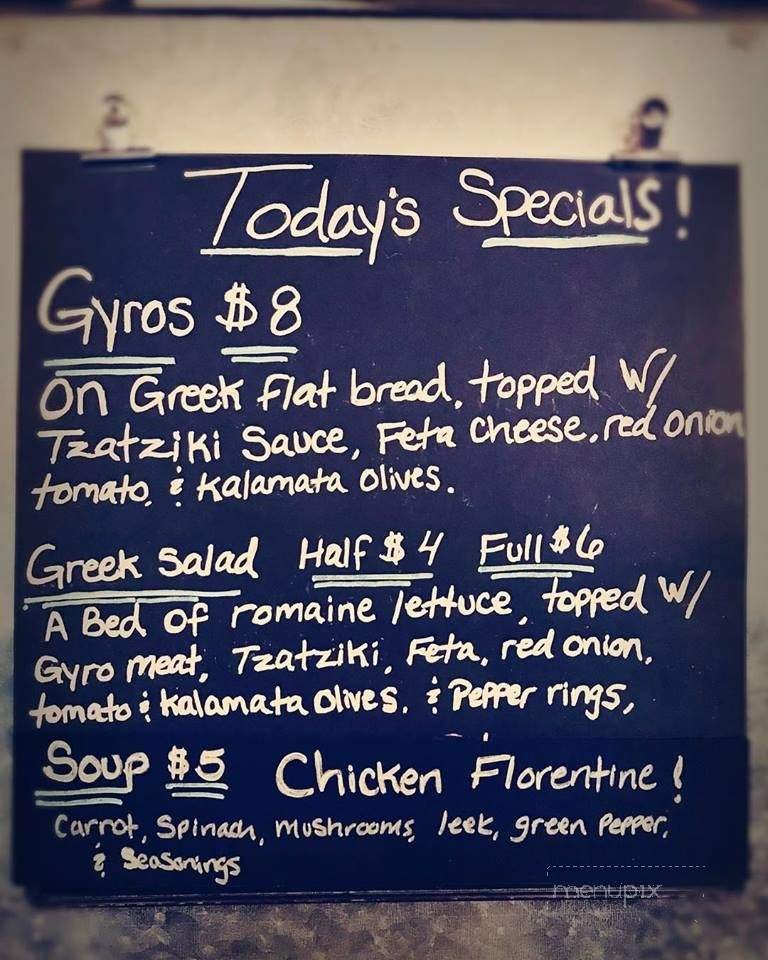 Today's Specials!
Gyros $8
On Greek flat bread, topped w/
Tzatziki Sauce, Feta cheese, red onion
tomato, & Kalamata olives.
Greek Salad Half $4 Full $6
A Bed of romaine lettuce, topped w/
Gyro meat, Tzatziki, Feta, red onion,
tomato & Kalamata Olives, & Pepper rings,
Soup $5 Chicken Florentine!
Carrot, Spinach, mushrooms, leek, green Pepper,
& Seasonings
menupix